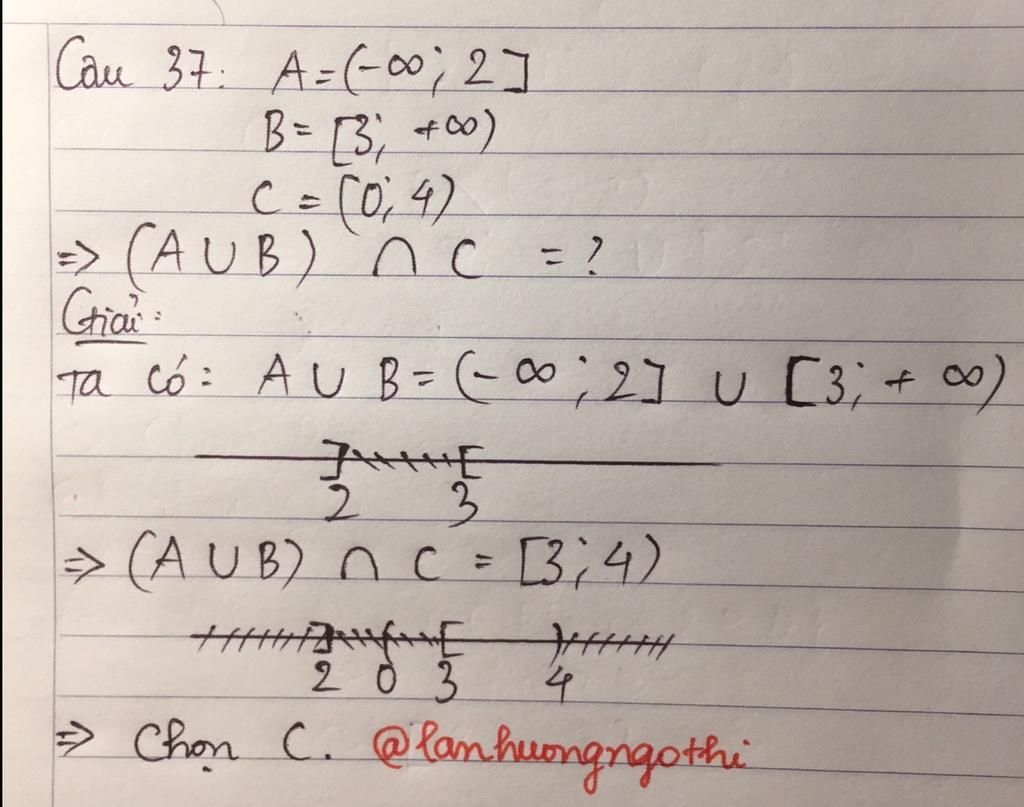 Câu 37: A = (-∞; 2]
B = [3; +∞)
C = (0; 4)
=> (A ∪ B) ∩ C = ?
Giải:
Ta có: A ∪ B = (-∞; 2] ∪ [3; +∞)
2 3
=> (A ∪ B) ∩ C = [3; 4)
2 0 3 4
=> Chọn C. @lanhuongngothi